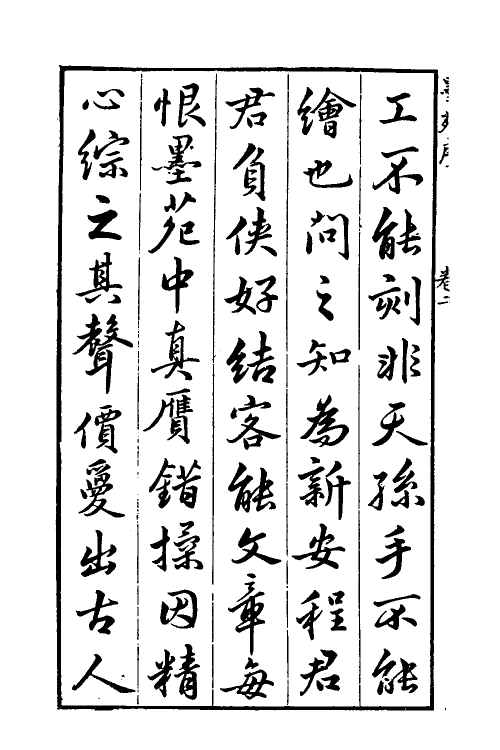 工不能刻非天孫手不能
繪也問之知為新安程君
君負俠好結客能文章每
恨墨苑中真贋錯操因精
心綜之其聲價爰出古人